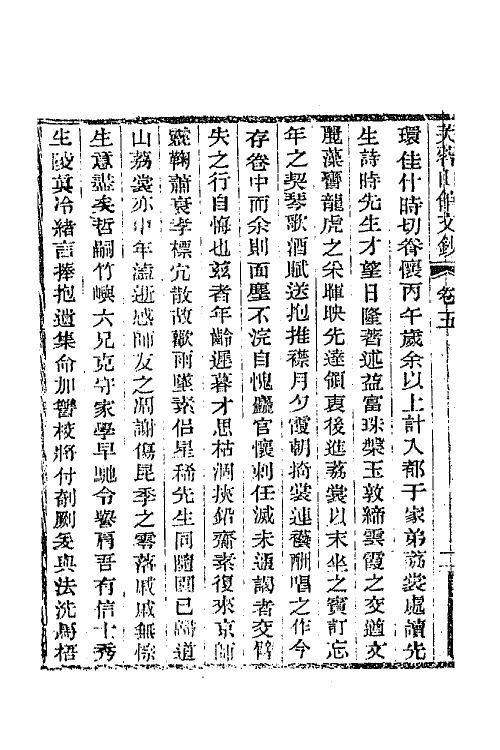 芙蓉山館文鈔 卷五
環佳什時切眷懷丙午歲余以上計入都于家弟荔裳處讀先
生詩時先生才望日隆著述益富珠槃玉敦締雲霞之交遒文
麗藻躋龍虎之采暉映先達領袖後進荔裳以末坐之賓訂忘
年之契琴歌酒賦送抱推襟月夕霞朝掎裳連襼酬唱之作今
存卷中而余則面塵不浣自愧麤官懷刺任滅未通謁者交臂
失之行自悔也茲者年齡遲暮才思枯涸挾鉛齎素復來京師
靈鞠蕭衰孝標宂散故歡雨墜素侶星稀先生同隨園已歸道
山荔裳亦中年溘逝感師友之凋謝傷昆季之零落戚戚無悰
生意盡矣哲嗣竹嶼六兄克守家學早馳令譽屑吾有信士秀
生陵眞冷緒言捧抱遺集命加讐校將付剞劂爰與法沈馬梧